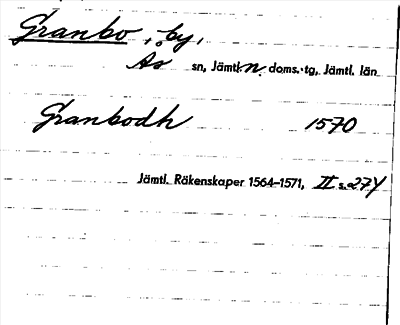 Granbo, by,
Ås sn, Jämtl. n. doms.-tg, Jämtl. län
Granbodh 1570
Jämtl. Räkenskaper 1564–1571, II s. 274